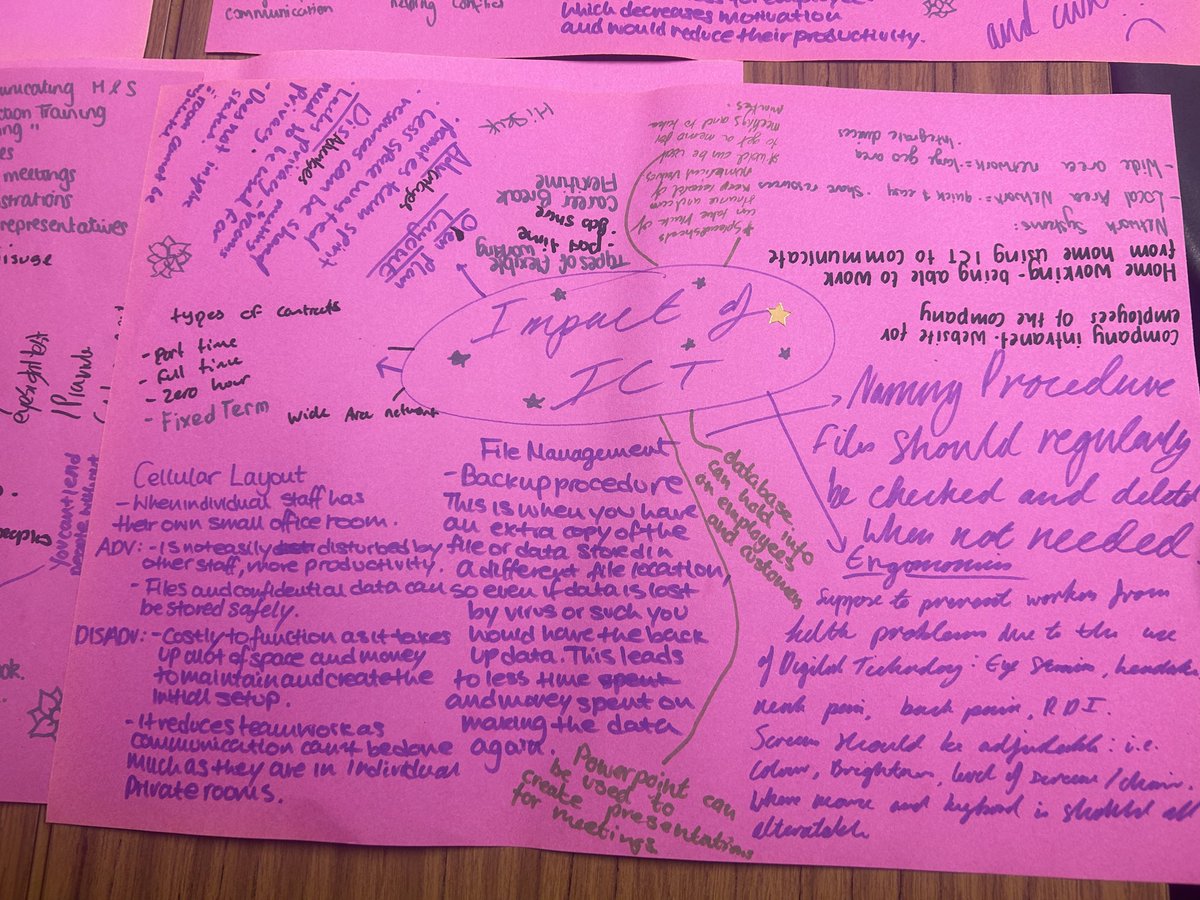 communication
helping conflict
which decreases motivation
and would reduce their productivity.
and
municating M & S
ction Training
ing"
es
meetings
strations
representatives
isuge
eyesights
You can't end
Hi
Impact of
ICT
Open Plan
Layout
Advantages
- Promotes team spirit
- Less space wasted
resources can be shared
Disadvantages
- Lacks privacy - meeting rooms
need to be used for
privacy.
- Does not inspire
status.
- room cannot be
Types of flexible
working
- part time
- Job share
Career Break
Flexitime
*Spreadsheets
can take track of
finance and can
keep record of
numerical values
*word can be used
to get a memo for
meetings and to take
minutes.
Company intranet - website for
employees of the company
Home working - being able to work
from home using ICT to communicate
Network Systems:
- Local Area Network = quick & easy. Share resources
- Wide area network = large geo area
. Integrate devices
types of contracts
- Part time
- full time
- Zero hour
- Fixed Term
Wide Area network
Cellular Layout
- When individual staff has
their own small office room.
ADV: - Is not easily disturbed by
other staff, more productivity.
- Files and confidential data can
be stored safely.
DISADV: - Costly to function as it takes
up alot of space and money
to maintain and create the
initial setup.
- It reduces teamwork as
communication can't be done
much as they are in individual
private rooms.
File Management
- Backup procedure
This is when you have
an extra copy of the
file or data stored in
a different file location,
so even if data is lost
by virus or such you
would have the back
up data. This leads
to less time spent
and money spent on
making the data
again.
database
can hold info
on employees
and customers
Powerpoint can
be used to
create presentations
for meetings
Naming Procedure
Files should regularly
be checked and delete
when not needed
Ergonomics
Suppose to prevent workers from
helth problems due to the use
of Digital Technology: Eye Strain, headake
neck pain, back pain, RDI.
Screen should be adjustable: i.e.
Colour, Brightness, level of screen/chair.
Where mouse and keyboard is should all
alteratable